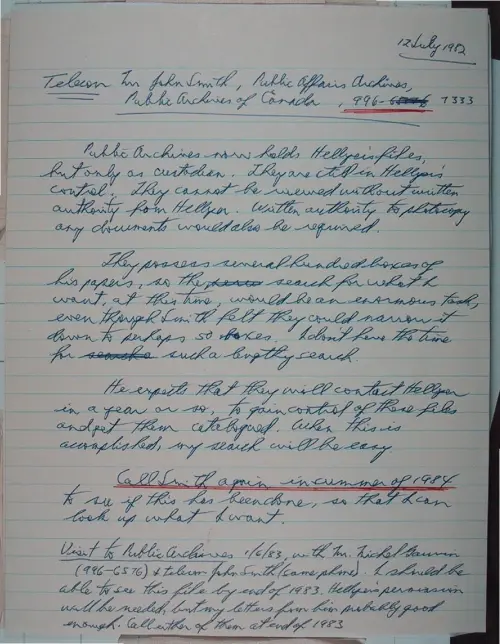 12 July 1982
Telecon Mr John Smith, Public Affairs Archives,
Public Archives of Canada, 996- 7333
Public Archives now holds Hellyer's files,
but only as custodian. They are still in Hellyer's
control. They cannot be viewed without written
authority from Hellyer. Written authority to photocopy
any documents would also be required.
They possess several hundred boxes of
his papers, so the search for what I
want, at this time, would be an enormous task,
even though Smith felt they could narrow it
down to perhaps 50 boxes. I don't have the time
for such a lengthy search.
He expects that they will contact Hellyer
in a year or so, to gain control of those files
and get them catalogued. When this is
accomplished, my search will be easy
Call Smith again in summer of 1984
to see if this has been done, so that I can
look up what I want.
Visit to Public Archives 1/6/83, with Mr. Michel
(996-6576) & telecon John Smith (same phone). I should be
able to see this file by end of 1983. Hellyer's permission
will be needed, but my letters from him probably good
enough. Call either of them at end of 1983